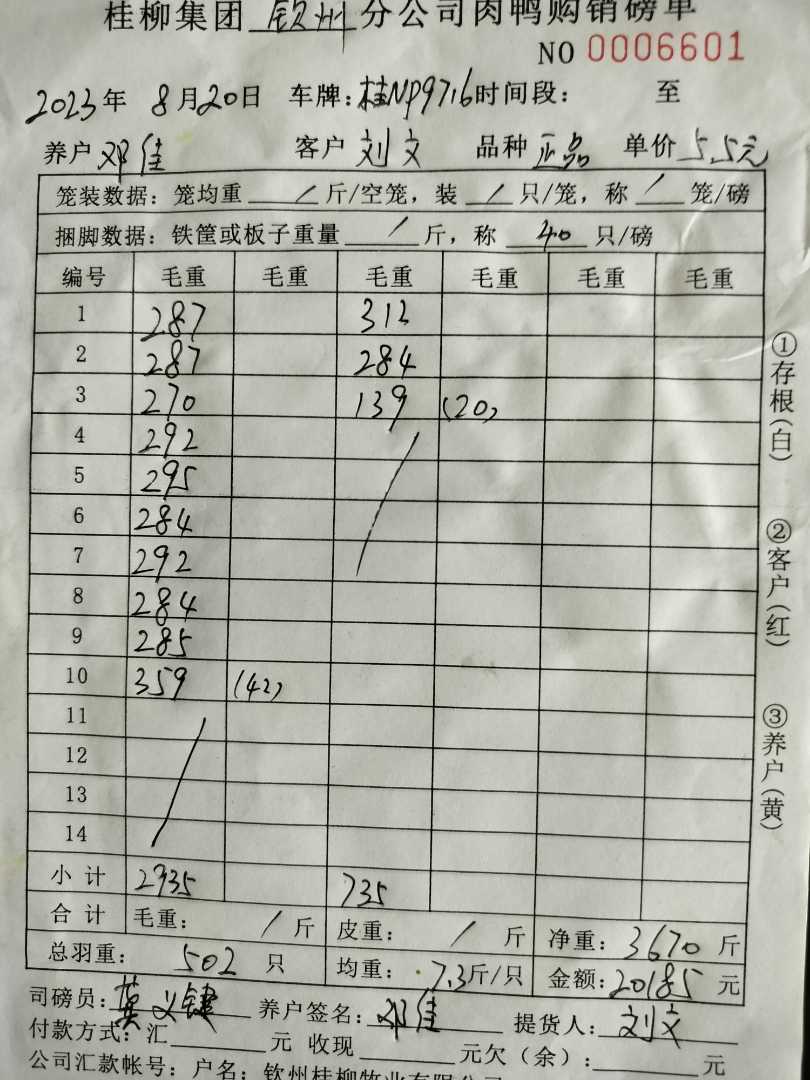 桂柳集团 钦州 分公司肉鸭购销磅单
NO 0006601
2023年 8月20日 车牌:桂NP9716 时间段: 至
养户 邓佳 客户 刘文 品种 正品 单价 5.5元
笼装数据: 笼均重 / 斤/空笼, 装 / 只/笼, 称 / 笼/磅
捆脚数据: 铁筐或板子重量 / 斤, 称 40 只/磅
编号 毛重 毛重 毛重 毛重 毛重 毛重
1 287 312
2 287 284
3 270 139 (20)
4 292
5 295
6 284
7 292
8 284
9 285
10 359 (42)
11
12
13
14
小计 2935 735
合计 毛重: / 斤 皮重: / 斤 净重: 3670 斤
总羽重: 502 只 均重: 7.3斤/只 金额:20185 元
司磅员:莫义键 养户签名: 邓佳 提货人: 刘文
付款方式: 汇 元 收现 元欠(余): 元
公司汇款帐号: 户名: 钦州桂柳牧业有限公司
①存根(白)
②客户(红)
③养户(黄)